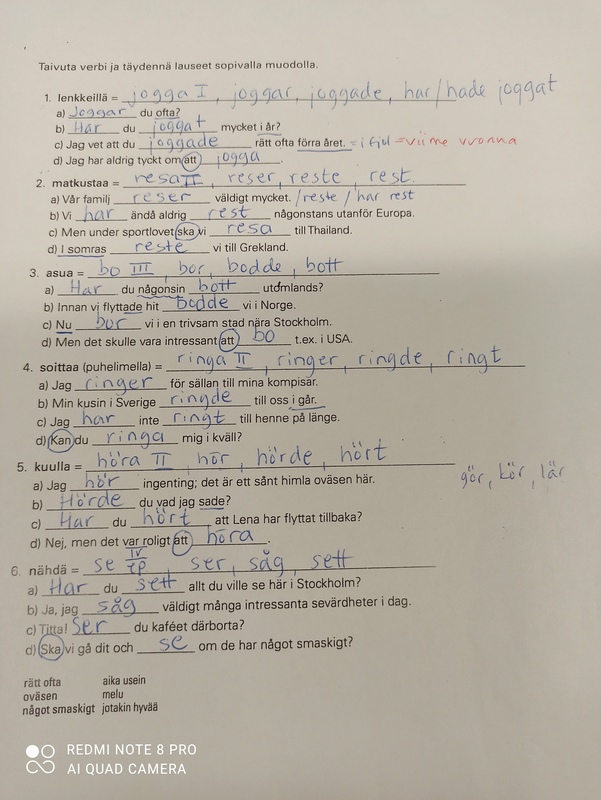 Taivuta verbi ja täydennä lauseet sopivalla muodolla.
1. lenkkeillä = jogga I, joggar, joggade, har/hade joggat
a) Joggar du ofta?
b) Har du joggat mycket i år?
c) Jag vet att du joggade rätt ofta förra året. = i fjol = viime vuonna
d) Jag har aldrig tyckt om att jogga.
2. matkustaa = resa II, reser, reste, rest.
a) Vår familj reser väldigt mycket. /reste / har rest
b) Vi har ändå aldrig rest någonstans utanför Europa.
c) Men under sportlovet ska vi resa till Thailand.
d) I somras reste vi till Grekland.
3. asua = bo III, bor, bodde, bott
a) Har du någonsin bott utomlands?
b) Innan vi flyttade hit bodde vi i Norge.
c) Nu bor vi i en trivsam stad nära Stockholm.
d) Men det skulle vara intressant att bo t.ex. i USA.
4. soittaa (puhelimella) = ringa II, ringer, ringde, ringt
a) Jag ringer för sällan till mina kompisar.
b) Min kusin i Sverige ringde till oss i går.
c) Jag har inte ringt till henne på länge.
d) Kan du ringa mig i kväll?
5. kuulla = höra II, hör, hörde, hört
a) Jag hör ingenting; det är ett sånt himla oväsen här. gör, kör, lär
b) Hörde du vad jag sade?
c) Har du hört att Lena har flyttat tillbaka?
d) Nej, men det var roligt att höra.
6. nähdä = se IV ep, ser, såg, sett
a) Har du sett allt du ville se här i Stockholm?
b) Ja, jag såg väldigt många intressanta sevärdheter i dag.
c) Titta! Ser du kaféet därborta?
d) Ska vi gå dit och se om de har något smaskigt?
rätt ofta aika usein
oväsen melu
något smaskigt jotakin hyvää
REDMI NOTE 8 PRO
AI QUAD CAMERA